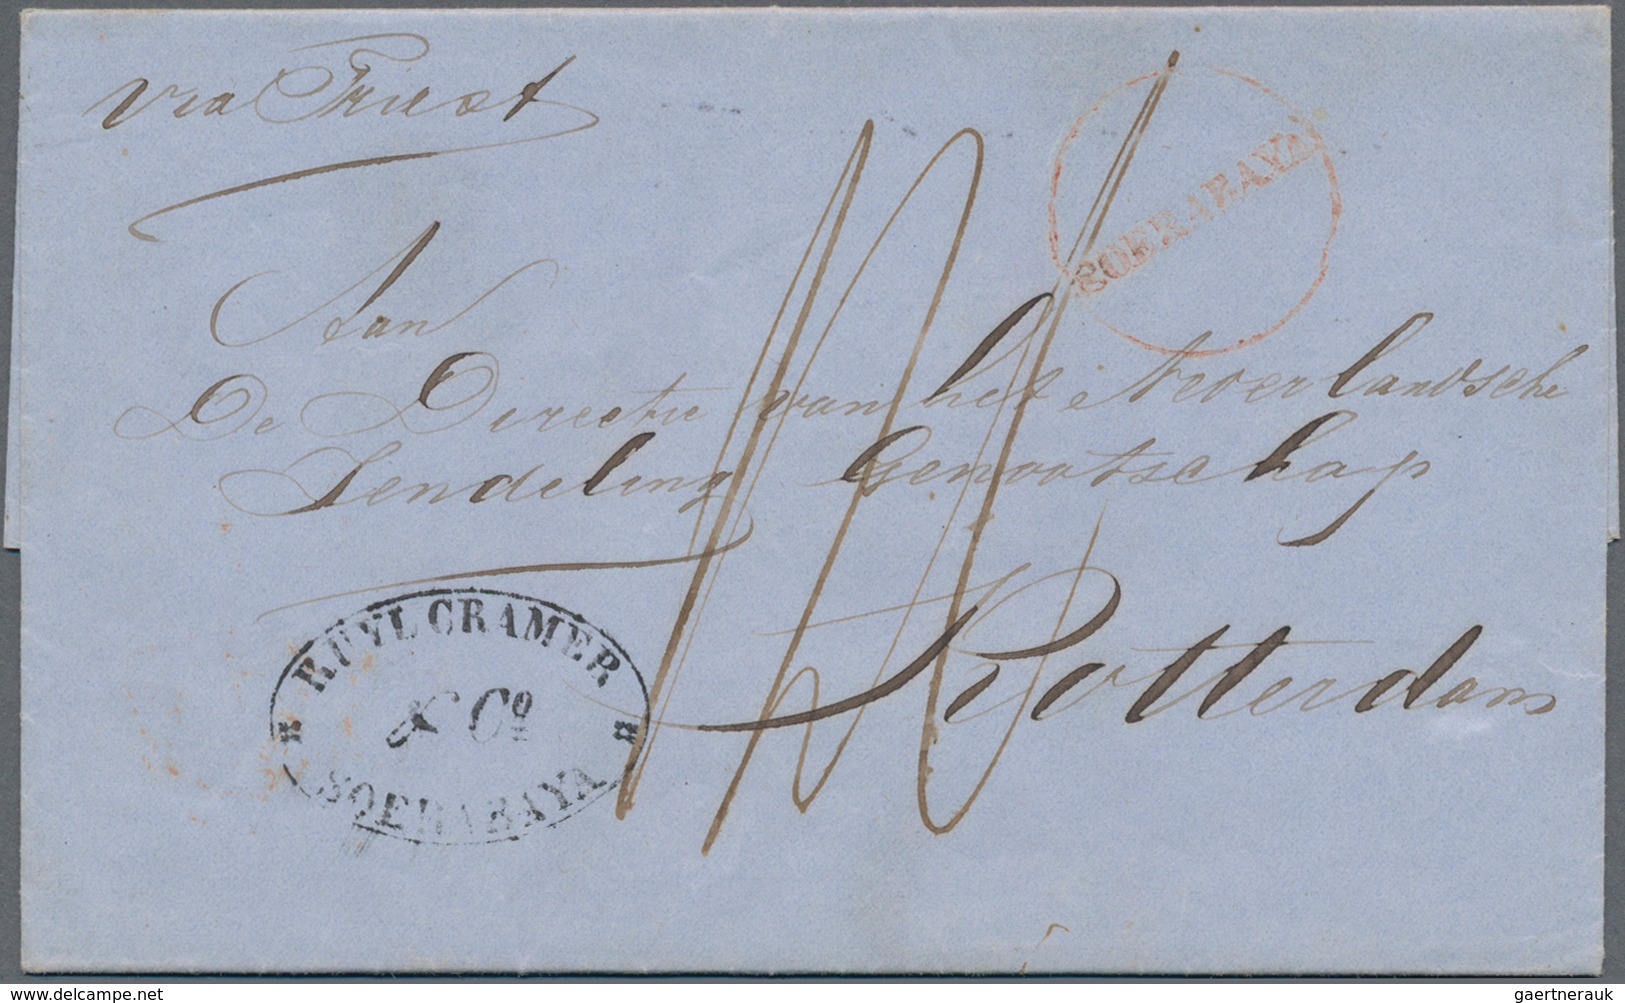 via Triest
SOERABAYA
Aan
De Directie van het Nederlandsche
Zendeling Genootschap
Rotterdam
RUYL CRAMER
& Co
SOERABAYA
www.delcampe.net
gaertnerauk